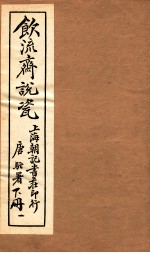 飲流齋說瓷
上海朝記書莊印行
唐駝署 下册